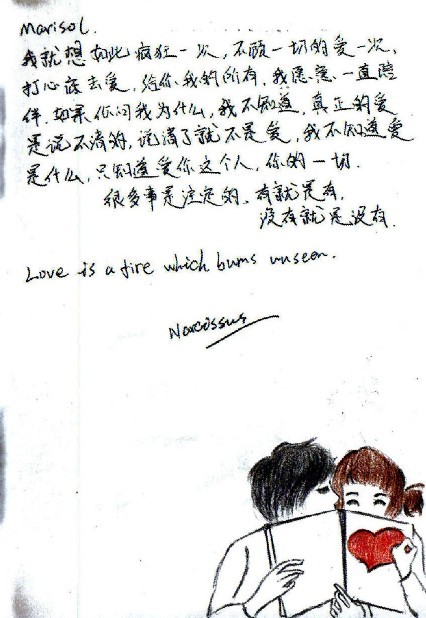 Marisol.
我就想如此疯狂一次,不顾一切的爱一次,
打心底去爱,给你我的所有,我愿意一直陪
伴.如果你问我为什么,我不知道,真正的爱
是说不清的,说清了就不是爱,我不知道爱
是什么,只知道爱你这个人,你的一切.
很多事是注定的,有就是有,
没有就是没有.
Love is a fire which burns unseen.
Narcossus